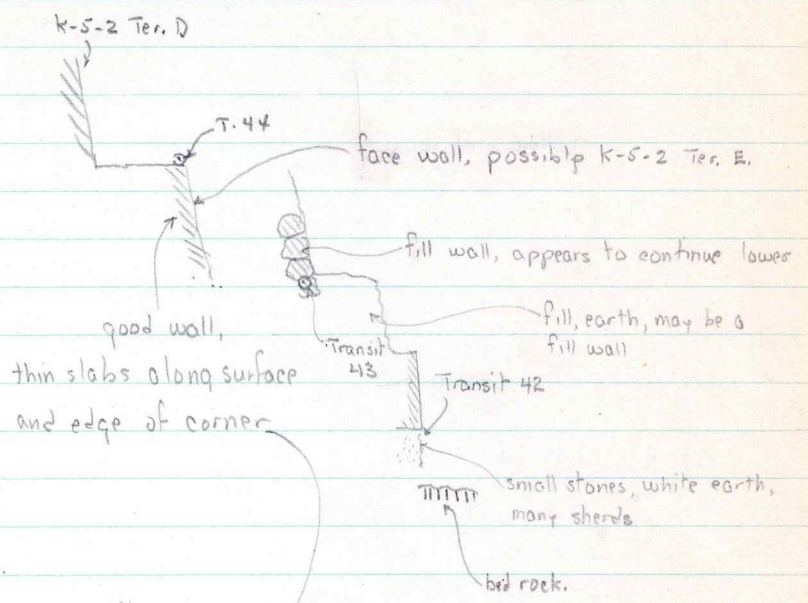 K-5-2 Ter. D
T. 44
face wall, possible K-5-2 Ter. E.
fill wall, appears to continue lower
good wall,
thin slabs along surface
and edge of corner
fill, earth, may be a
fill wall
Transit
43
Transit 42
small stones, white earth,
many sherds
bed rock.